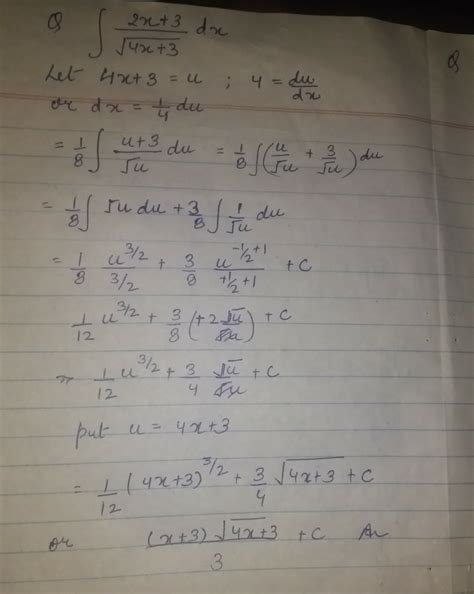 Q ∫ (2x+3)/√(4x+3) dx
Let 4x+3 = u ; 4 = du/dx
or dx = 1/4 du
= 1/8 ∫ (u+3)/√u du = 1/8 ∫ (u/√u + 3/√u) du
= 1/8 ∫ √u du + 3/8 ∫ 1/√u du
= 1/8 u^(3/2)/(3/2) + 3/8 u^(-1/2+1)/(+1/2+1) + C
1/12 u^(3/2) + 3/8 (+2√u) + C
1/12 u^(3/2) + 3/4 √u + C
put u = 4x+3
= 1/12 (4x+3)^(3/2) + 3/4 √(4x+3) + C
or (x+3)√(4x+3)/3 + C An
Q